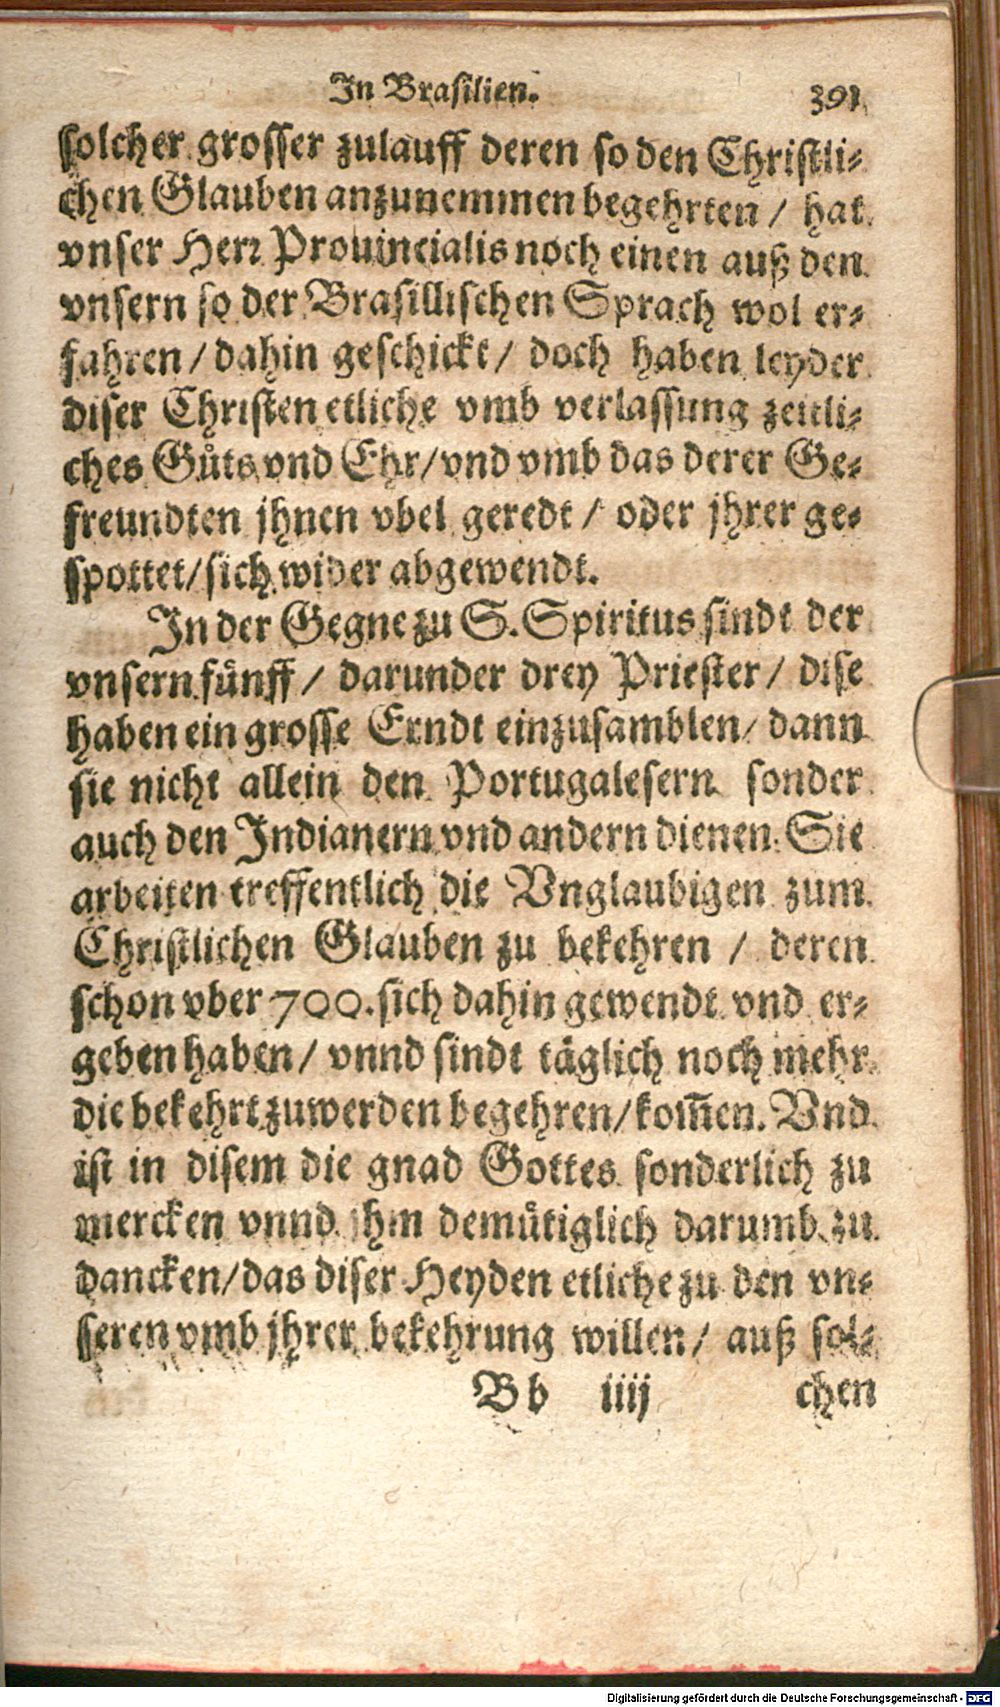 In Brasilien. 391
solcher grosser zulauff deren so den Christli⸗
chen Glauben anzunemmen begehrten / hat
vnser Herr Prouincialis noch einen auß den
vnsern so der Brasillischen Sprach wol er⸗
fahren / dahin geschickt / doch haben leyder
diser Christen etliche vmb verlassung zeitli⸗
ches Gůts vnd Ehr / vnd vmb das derer Ge⸗
freundten jhnen vbel geredt / oder jhrer ge⸗
spottet / sich wider abgewendt.
In der Gegne zu S. Spiritus sindt der
vnsern fünff / darunder drey Priester / dise
haben ein grosse Erndt einzusamblen / dann
sie nicht allein den Portugalesern sonder
auch den Indianern vnd andern dienen. Sie
arbeiten treffentlich die Vnglaubigen zum
Christlichen Glauben zu bekehren / deren
schon vber 700. sich dahin gewendt vnd er⸗
geben haben / vnnd sindt täglich noch mehr
die bekehrt zuwerden begehren / kom̄en. Vnd
ist in disem die gnad Gottes sonderlich zu
mercken vnnd jhm demütiglich darumb zu
dancken / das diser Heyden etliche zu den vn⸗
seren vmb jhrer bekehrung willen / auß sol⸗
Bb iiij chen
Digitalisierung gefördert durch die Deutsche Forschungsgemeinschaft - DFG